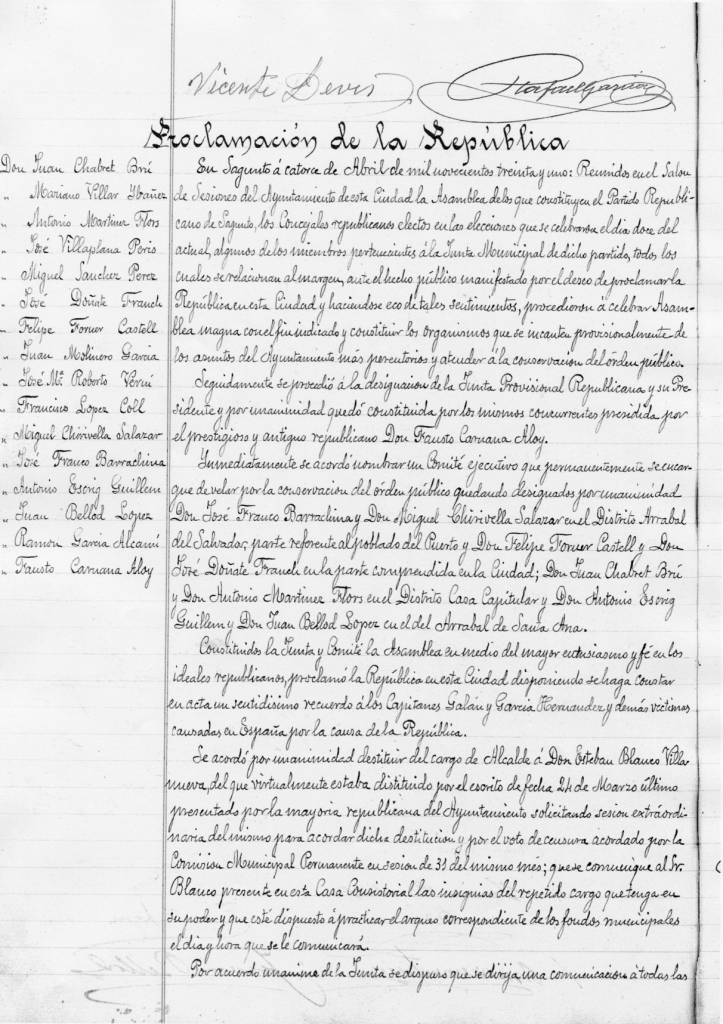 Vicente Devis
Rafael García
Proclamación de la República
Don Juan Chabret Brú
" Mariano Villar Ybañez
" Antonio Martinez Flors
" José Villaplana Peris
" Miguel Sanchez Perez
" José Doñate Franch
" Felipe Forner Castell
" Juan Molinero Garcia
" José Mª Roberto
" Francisco Lopez Coll
" Miguel Chirivella Salazar
" José Franco Barrachina
" Antonio Escrig Guillem
" Juan Bellod Lopez
" Ramon Garcia Alcamí
" Fausto Caruana Aloy
En Sagunto á catorce de Abril de mil novecientos treinta y uno: Reunidos en el Salon
de Sesiones del Ayuntamiento de esta Ciudad la Asamblea de los que constituyen el Partido Republi-
cano de Sagunto, los Concejales republicanos electos en las elecciones que se celebraron el dia doce del
actual, algunos de los miembros pertenecientes á la Junta Municipal de dicho partido, todos los
cuales se relacionan al margen, ante el hecho público manifestado por el deseo de proclamar la
República en esta Ciudad y haciendose eco de tales sentimientos, procedieron á celebrar Asam-
blea magna con el fin indicado y constituir los organismos que se incauten provisionalmente de
los asuntos del Ayuntamiento más perentorios y atender á la conservacion del órden público.
Seguidamente se procedió á la designacion de la Junta Provisional Republicana y su Pre-
sidente y por unanimidad quedó constituida por los mismos concurrentes presidida por
el prestigioso y antiguo republicano Don Fausto Caruana Aloy.
Inmediatamente se acordó nombrar un Comité ejecutivo que permanentemente se encar-
gue de velar por la conservacion del órden público quedando designados por unanimidad
Don José Franco Barrachina y Don Miguel Chirivella Salazar en el Distrito Arrabal
del Salvador, parte referente al poblado del Puerto y Don Felipe Forner Castell y Don
José Doñate Franch en la parte comprendida en la Ciudad; Don Juan Chabret Brú
y Don Antonio Martinez Flors en el Distrito Casa Capitular y Don Antonio Escrig
Guillem y Don Juan Bellod Lopez en el del Arrabal de Santa Ana.
Constituidos la Junta y Comité la Asamblea en medio del mayor entusiasmo y fé en los
ideales republicanos, proclamó la República en esta Ciudad disponiendo se haga constar
en acta un sentidisimo recuerdo á los Capitanes Galán y Garcia Hernandez y demás victimas
causadas en España por la causa de la República.
Se acordó por unanimidad destituir del cargo de Alcalde á Don Esteban Blanco Villa-
nueva, del que virtualmente estaba distituido por el escrito de fecha 24 de Marzo último
presentado por la mayoria republicana del Ayuntamiento solicitando sesion extraordi-
naria del mismo para acordar dicha destitucion y por el voto de censura acordado por la
Comision Municipal Permanente en sesion de 31 del mismo més; que se comunique al Sr.
Blanco presente en esta Casa Consistorial las insignias del repetido cargo que tenga en
su poder y que esté dispuesto á practicar el arqueo correspondiente de los fondos municipales
el dia y hora que se le comunicará.
Por acuerdo unanime de la Junta se dispuso que se dirija una comunicacion á todas las